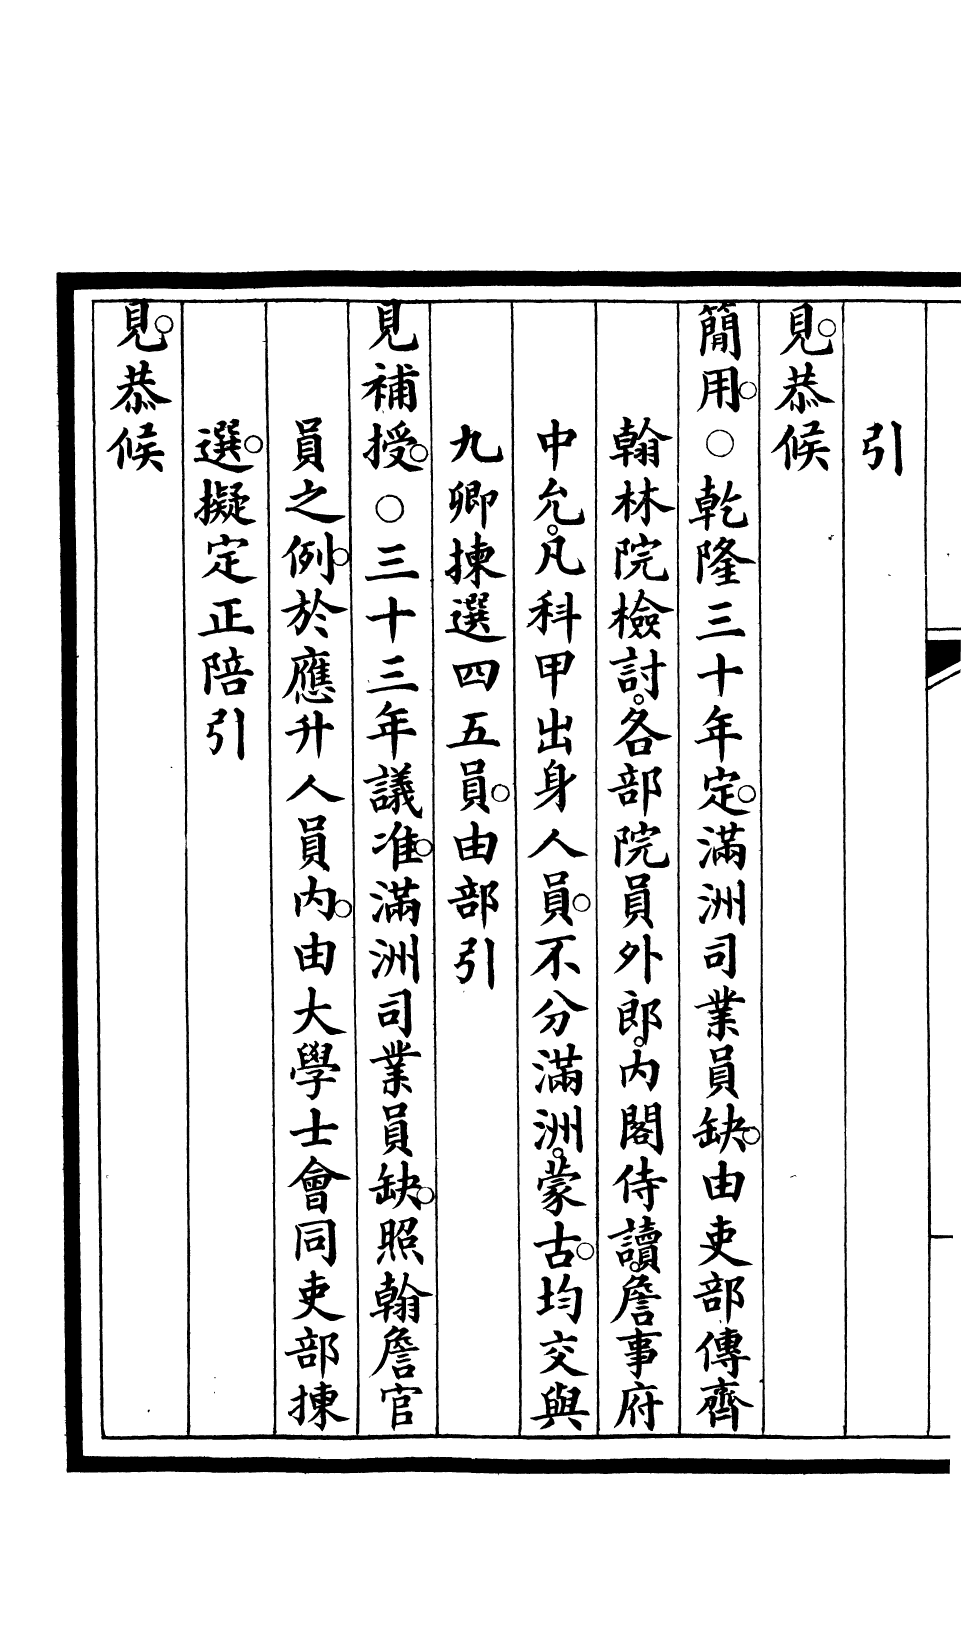 引
見。恭候
簡用。○乾隆三十年定。滿洲司業員缺。由吏部傳齊
翰林院檢討。各部院員外郎。內閣侍讀。詹事府
中允。凡科甲出身人員。不分滿洲。蒙古。均交與
九卿揀選四五員。由部引
見補授。○三十三年議准。滿洲司業員缺。照翰詹官
員之例。於應升人員內。由大學士會同吏部揀
選。擬定正陪引
見。恭候